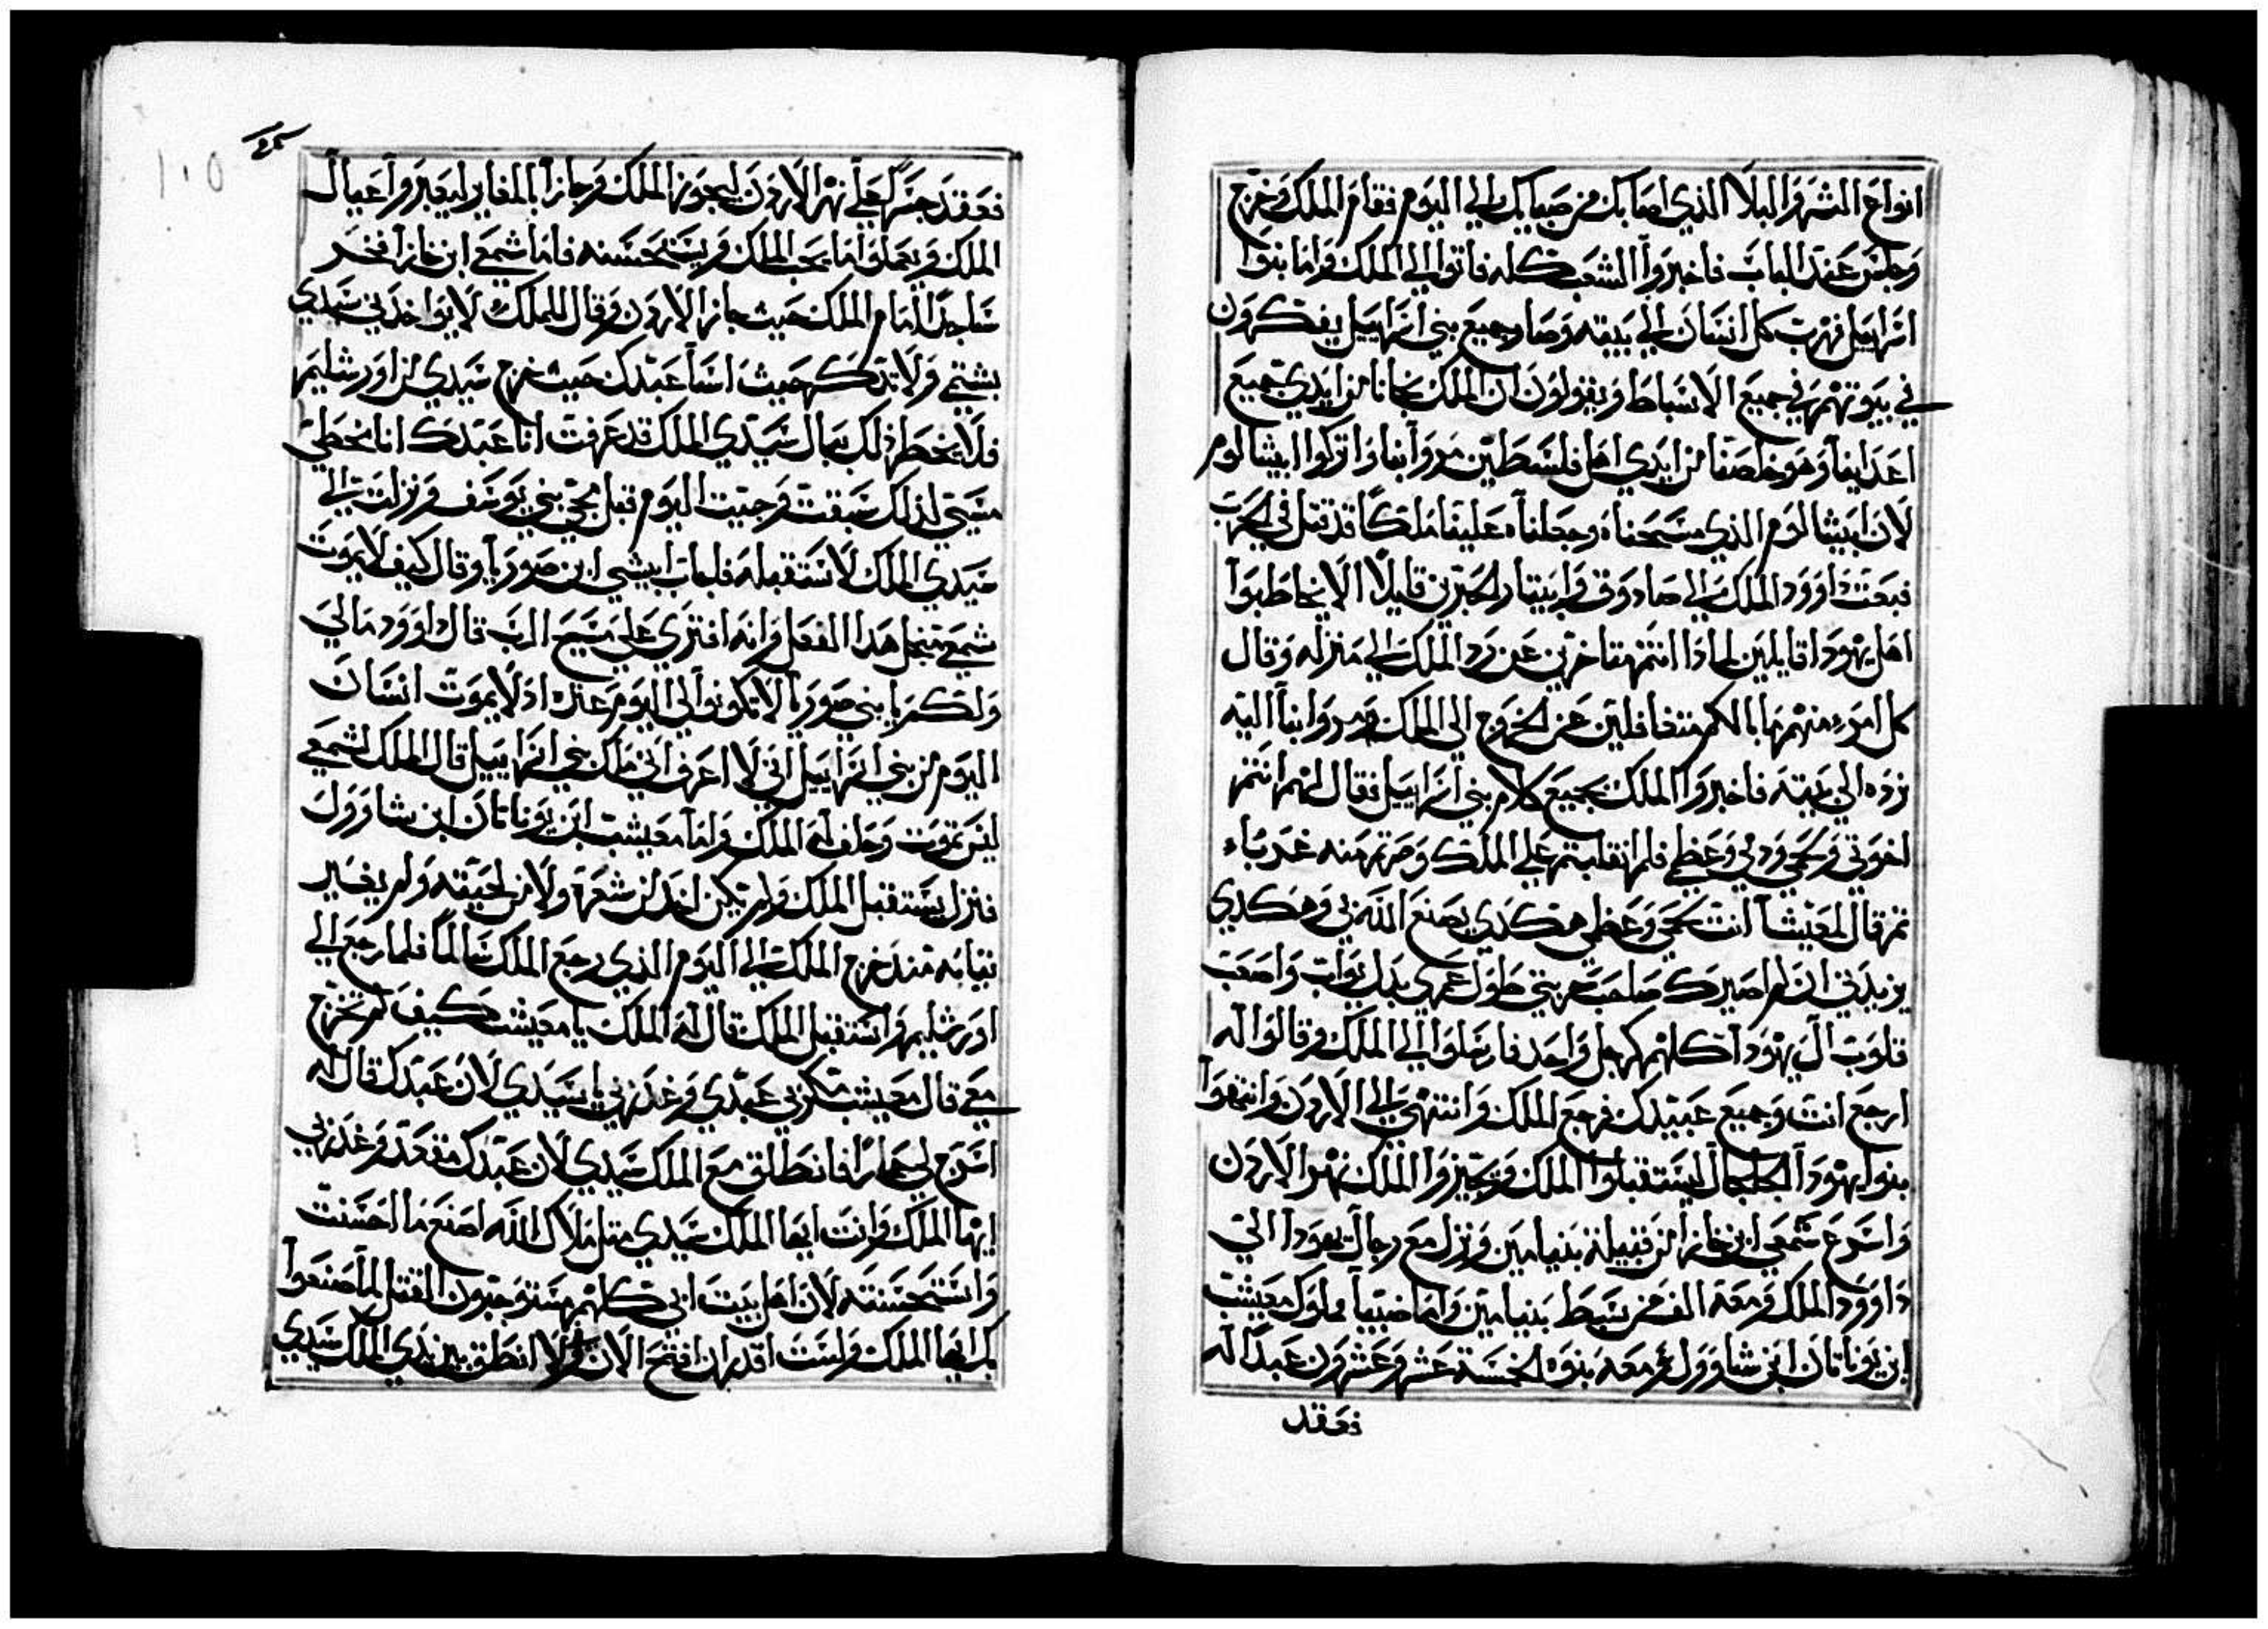 انواع الشر والبلا الذي اصابك من صباك الي اليوم فقام الملك وخرج
وجلس عند الباب فاخبروا الشعب كله فاتوا الي الملك واما بنوا
اسراييل فهرب كل انسان الي بيته وصار جميع بني اسراييل يفكرون
في بيوتهم في جميع الاسباط ويقولون ان الملك نجانا من ايدي جميع
اعداينا وهو خلصنا من ايدي اهل فلسطين مروا بنا واتركوا ابيشالوم
لان ابيشالوم الذي مسحناه وجعلناه علينا ملكًا قد قتل في الحرب
فبعث داوود الملك الي صادوق وابيتار الحبرين قايلًا الا يخاطبوا
اهل يهودا قايلين لماذا انتم متاخرين عن رد الملك الي منزله وقال
كل امرء منهم ما بالكم متغافلين عن الخروج الى الملك مروا بنا اليه
نرده الي بيته فاخبروا الملك بجميع كلام بني اسراييل فقال لهم انتم
اخوتي ولحمي ودمي وعظمي فلم انقلبتم علي الملك وصرتم منه غرباء
ثم قال لمعيشا انت لحمي وعظمي هكذي يصنع الله بي وهكذي
يزيدني ان لم اصيرك صاحب حربتي طول عمري بدل يواب واصعب
قلوب ال يهودا كلهم كرجل واحد فارسلوا الي الملك وقالوا له
ارجع انت وجميع عبيدك فرجع الملك وانتهي الي الاردن وانتهوا
بنوا يهودا الجلجال ليستقبلوا الملك ويجيزوا الملك نهر الاردن
واسرع شمعي ابن خازا من قبيلة بنيامين ونزل مع رجال يهودا الي
داوود الملك ومعه الف من سبط بنيامين واما ضبيا مملوك معيشب
ابن يوناتان ابن شاوول ومعه بنوه الخمسة عشر وعشرون عبدا له
فعقد
فعقد جسرًا علي نهر الاردن ليجوز الملك وجازا بالمغابر ليعبروا عيال
الملك ويعملوا ما يحب الملك ويستحسنه فاما شمعي ابن خازا فخر
ساجدًا امام الملك حيث جاز الاردن وقال للملك لا يواخذني سيدي
بشتمي ولا تذكر حيث اسا عبدك حيث خرج سيدي من اورشليم
فلا يخطر ذلك ببال سيدي الملك قد عرفت انا عبدك انا مخطي
مسي لذلك سبقت وجيت اليوم قبل مجي بني يوسف ونزلت الي
سيدي الملك لاستقبله فاجاب ابيشي ابن صوريا وقال كيف لا يموت
شمعي بمثل هذا الفعل وانه افتري علي مسيح الرب قال داوود ما لي
ولكم يا بني صوريا لا تكونوا لي اليوم عترة اذ لا يموت انسان
اليوم من بني اسراييل اني لا اعرف اني ملك بني اسراييل قال الملك لشمعي
ليس تموت وحلف له الملك واما معيشب ابن يوناتان ابن شاوول
فنزل يستقبل الملك ولم يكن اخذ من شعره ولا من لحيته ولم يغسير
ثيابه منذ خرج الملك الي اليوم الذي رجع الملك سالمًا فلما رجع الي
اورشليم واستقبل الملك قال له الملك يا معيشب كيف لم تخرج
معي قال معيشب مكرني عبدي وغدرني يا سيدي لان عبدك قال له
اسرج لي حمارًا فانطلق مع الملك سيدي لان عبدك مقعد وغدرني
ايها الملك وانت ايها الملك سيدي مثل ملاك الله اصنع ما احسنت
واستحسنته لان اهل بيت ابي كلهم مستوجبون القتل لما صنعوا
بك ايها الملك ولست اقدر ان افتح الان ولا انطق بين يدي الملك سيدي